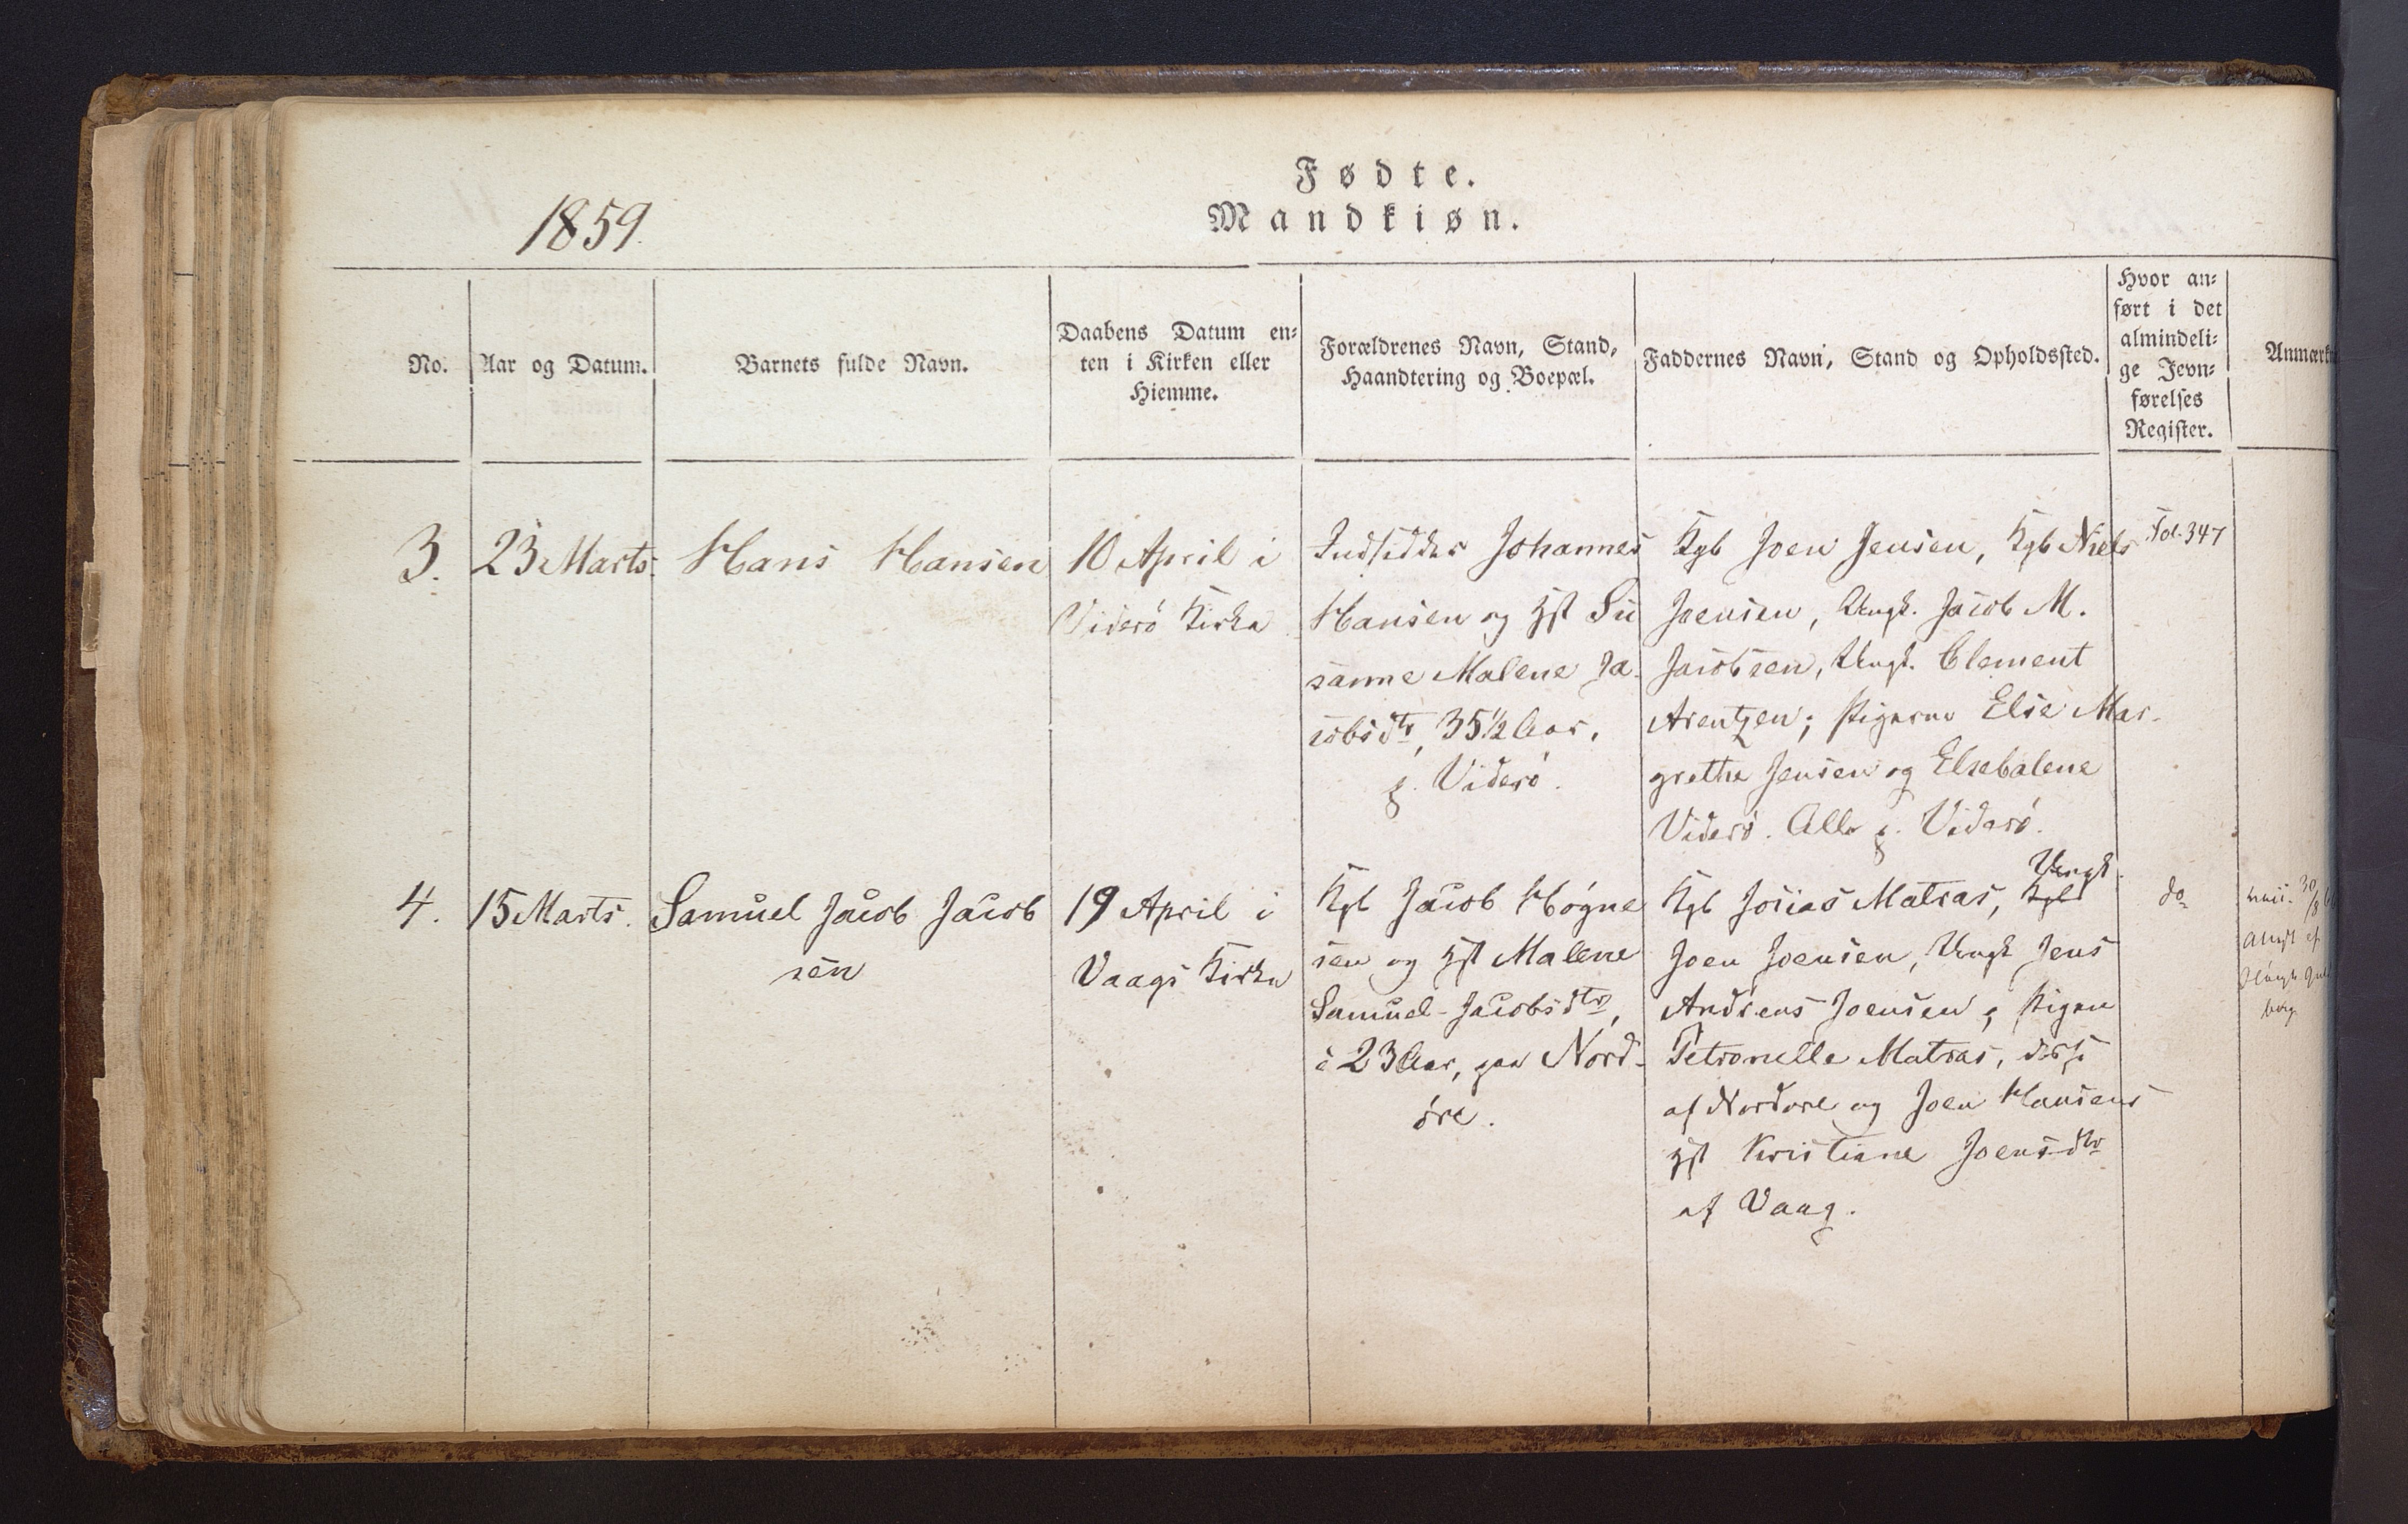 Fødte.
Mandkiøn.
1859.
No.
Aar og Datum.
Barnets fulde Navn.
Daabens Datum en-
ten i Kirken eller
Hiemme.
Forældrenes Navn, Stand,
Haandtering og Boepæl.
Faddernes Navn, Stand og Opholdssted.
Hvor an-
ført i det
almindeli-
ge Jevn-
førelses
Register.
Anmærk
3.
23 Marts.
Hans Hansen
10 April i
Viderö Kirke
Indsidder Johannes
Hansen og Hst Su
sanne Malene Ja-
cobsdtr, 35½ Aar,
p. Viderö.
Kgb Joen Jensen, Kgb Niels
Joensen, Ungk. Jacob M.
Jacobsen, Ungk. Clement
Arentzen; Pigerne Else Mar-
grethe Jensen og Elsebalene
Viderö. Alle p. Viderö.
Fol. 347
4.
15 Marts.
Samuel Jacob Jacob
sen
19 April i
Vaags Kirke
Kgb Jacob Högne
sen og Hst Malene
Samuel-Jacobsdtr,
23 Aar, paa Nord-
öre.
Ungk.
Kgb Josias Matras, Kgb
Joen Joensen, Ungk Jens
Andreas Joensen; Pigen
Petronelle Matras, disse
af Nordöre og Joen Hansens
Hst Kristiane Joensdtr
af Vaag.
do